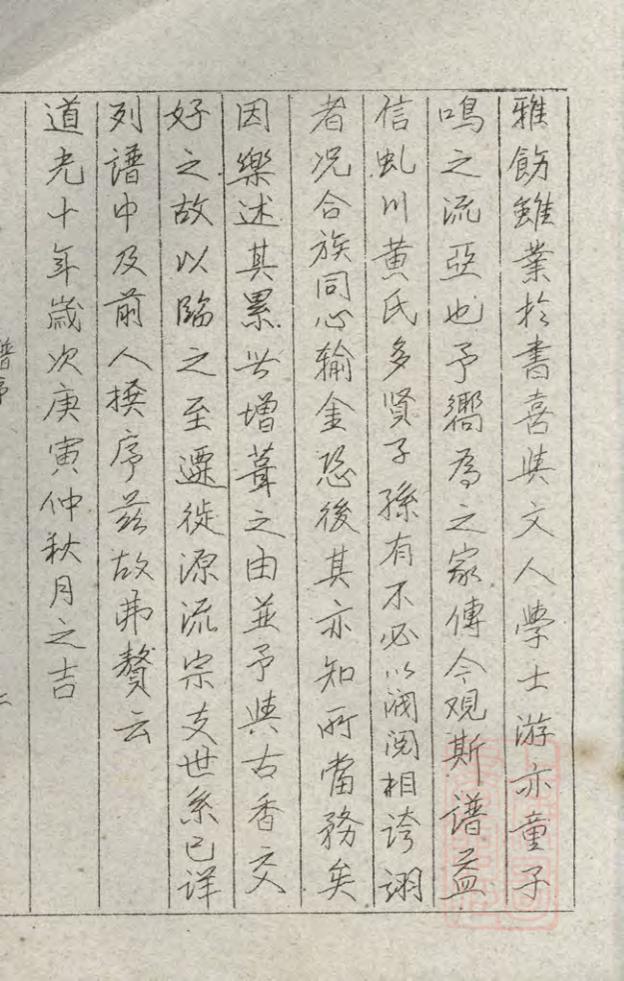 雅飭雖業於書喜與文人學士游亦童子
鳴之流亞也予嚮為之家傳今观斯谱益
信虬川黄氏多贤子孫有不必以阀阅相誇诩
者况合族同心输金恐後其亦知所當務矣
因樂述其累世增葺之由並予與古香交
好之故以臨之至遷徙源流宗支世系已详
列譜中及前人撰序兹故弗贅云
道光十年歲次庚寅仲秋月之吉
譜序
二